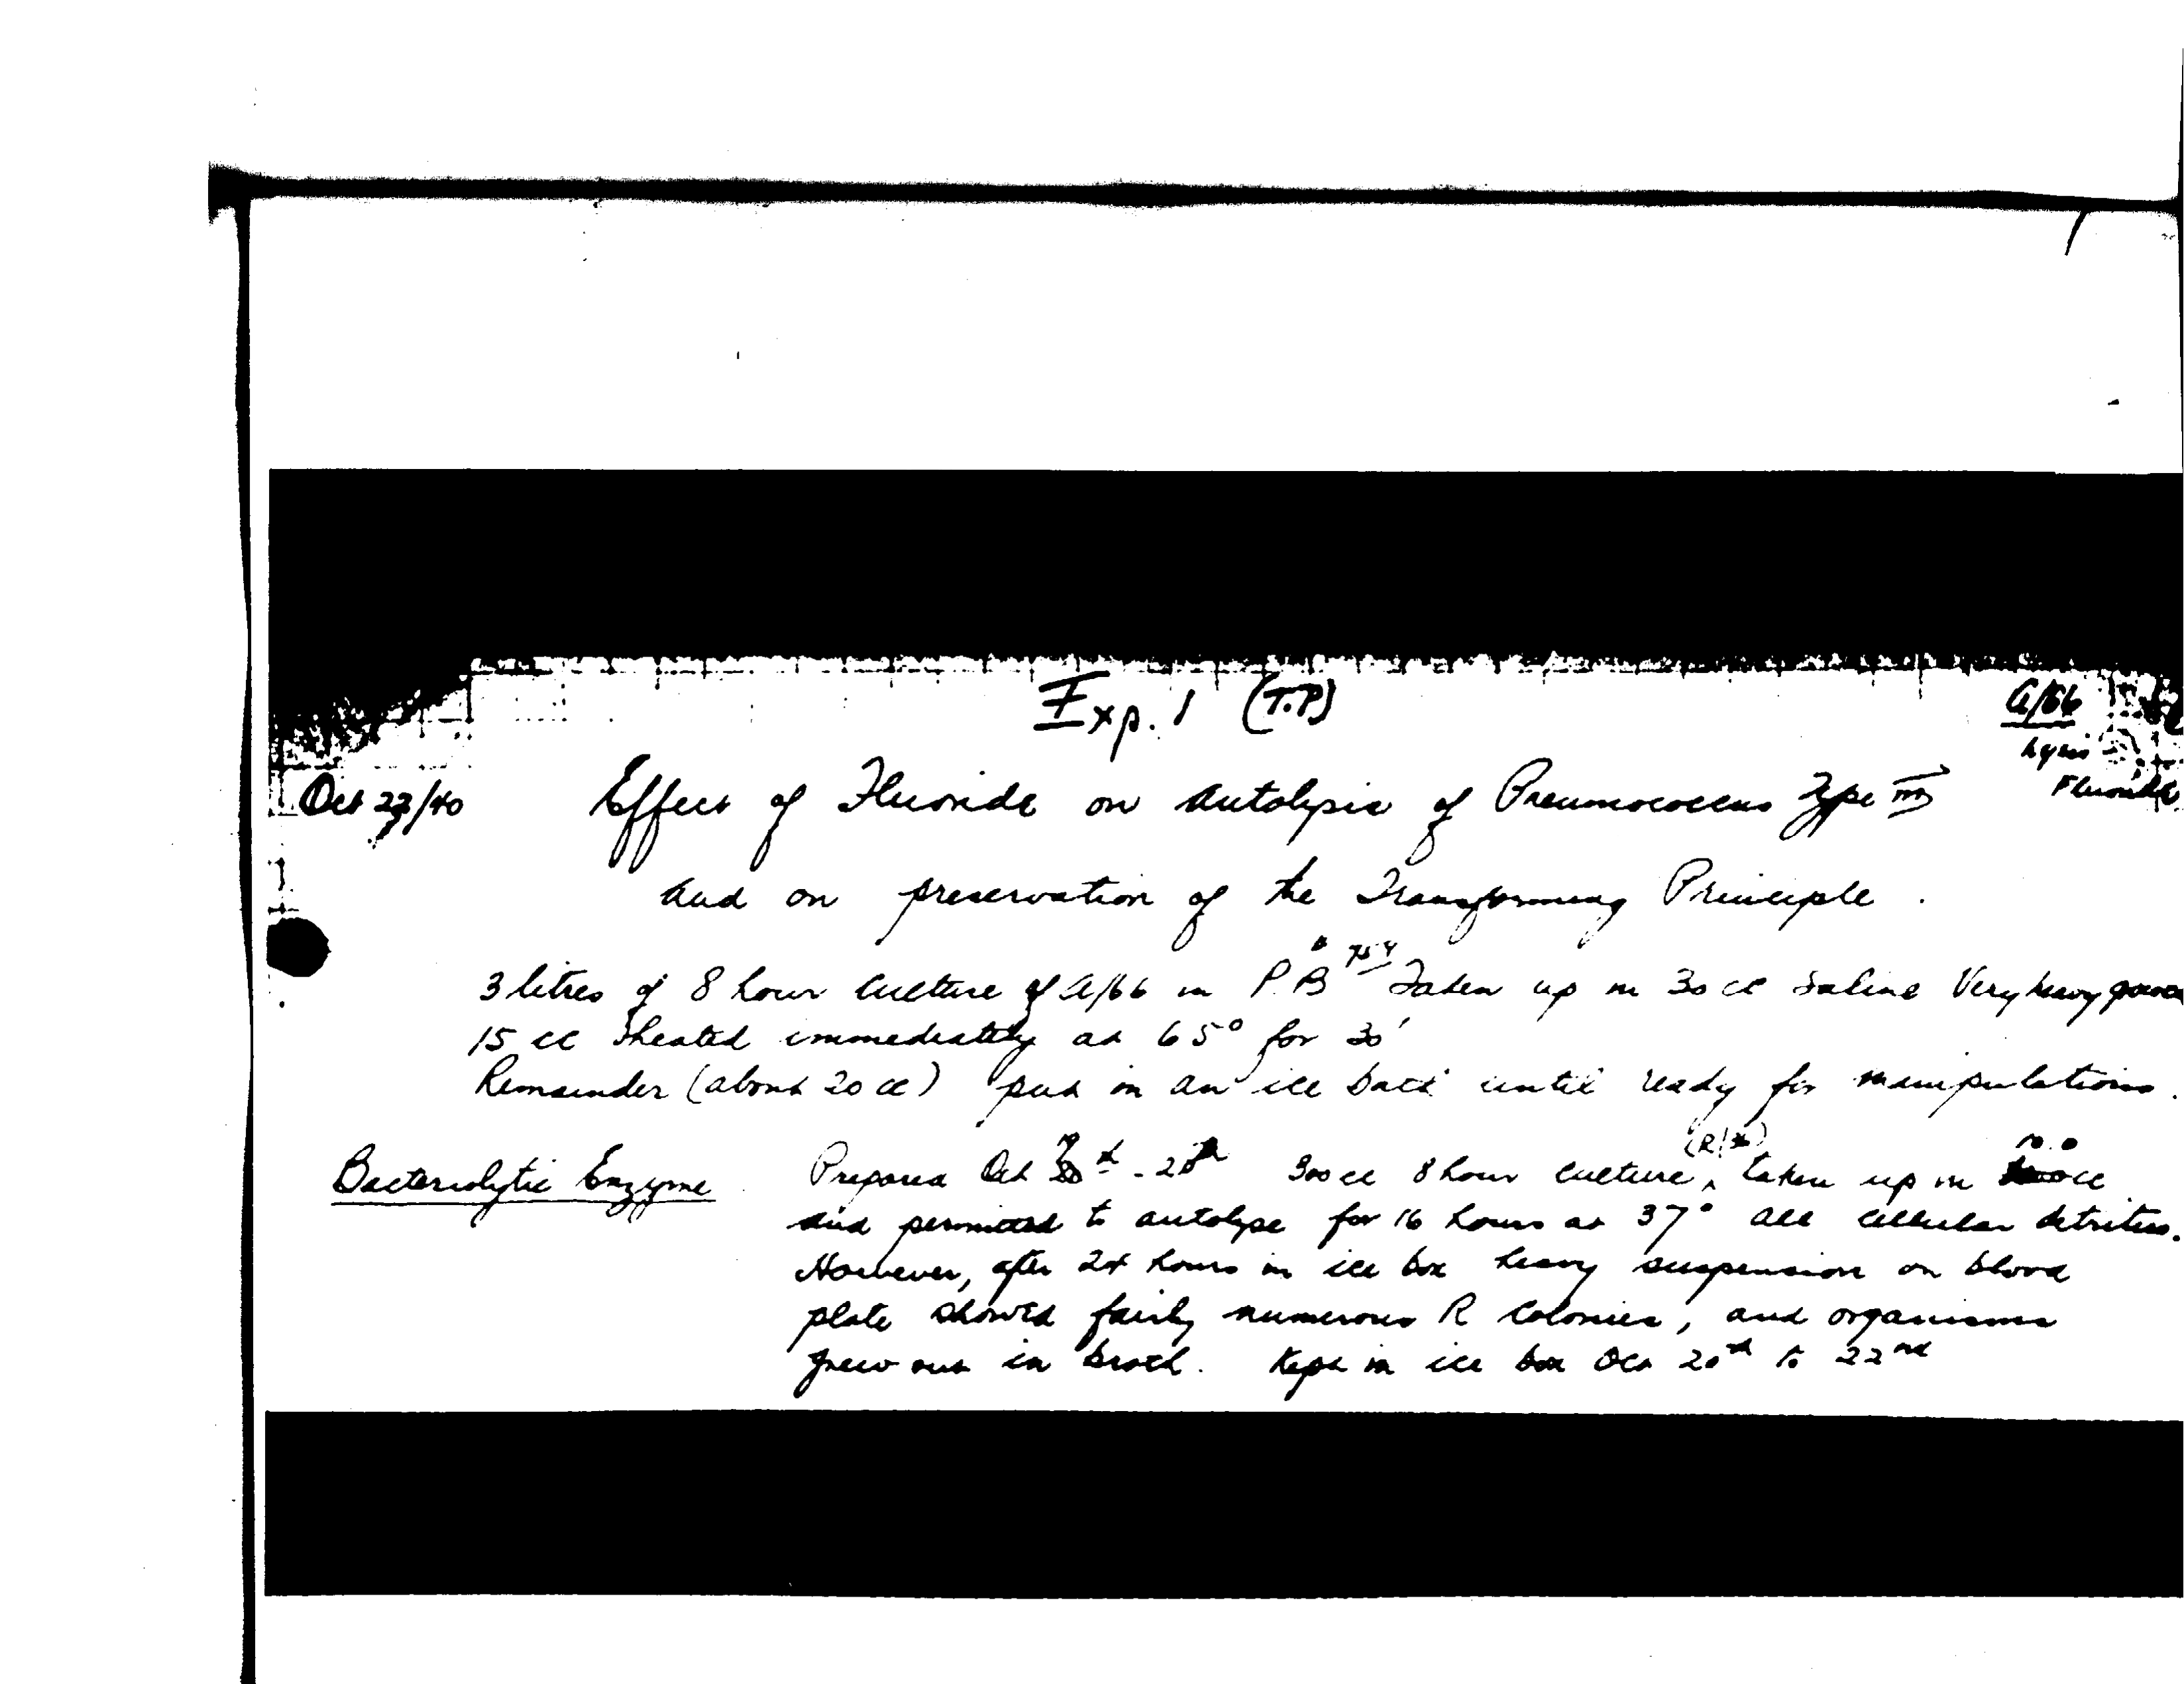 Exp. 1 (T.P)
A/66
Lysis
Fluoride
Oct 22/40 Effect of Fluoride on autolysis of Pneumococcus Type III
and on preservation of the Transforming Principle.
3 litres of 8 hour culture of A/66 in P.B Taken up in 30 cc saline Very heavy
15 cc heated immediately at 65° for 30'
Remainder (about 20 cc) put in an ice bath until ready for manipulations.
Bacteriolytic Enzyme Prepared Oct 300 cc 8 hour culture, taken up in cc
and permitted to autolyse for 16 hours at 37° all cellular detritus.
However, after 24 hours in ice box heavy suspension on blood
plate showed fairly numerous R colonies, and organisms
grew out in broth. Kept in ice box Oct 20th to 22nd